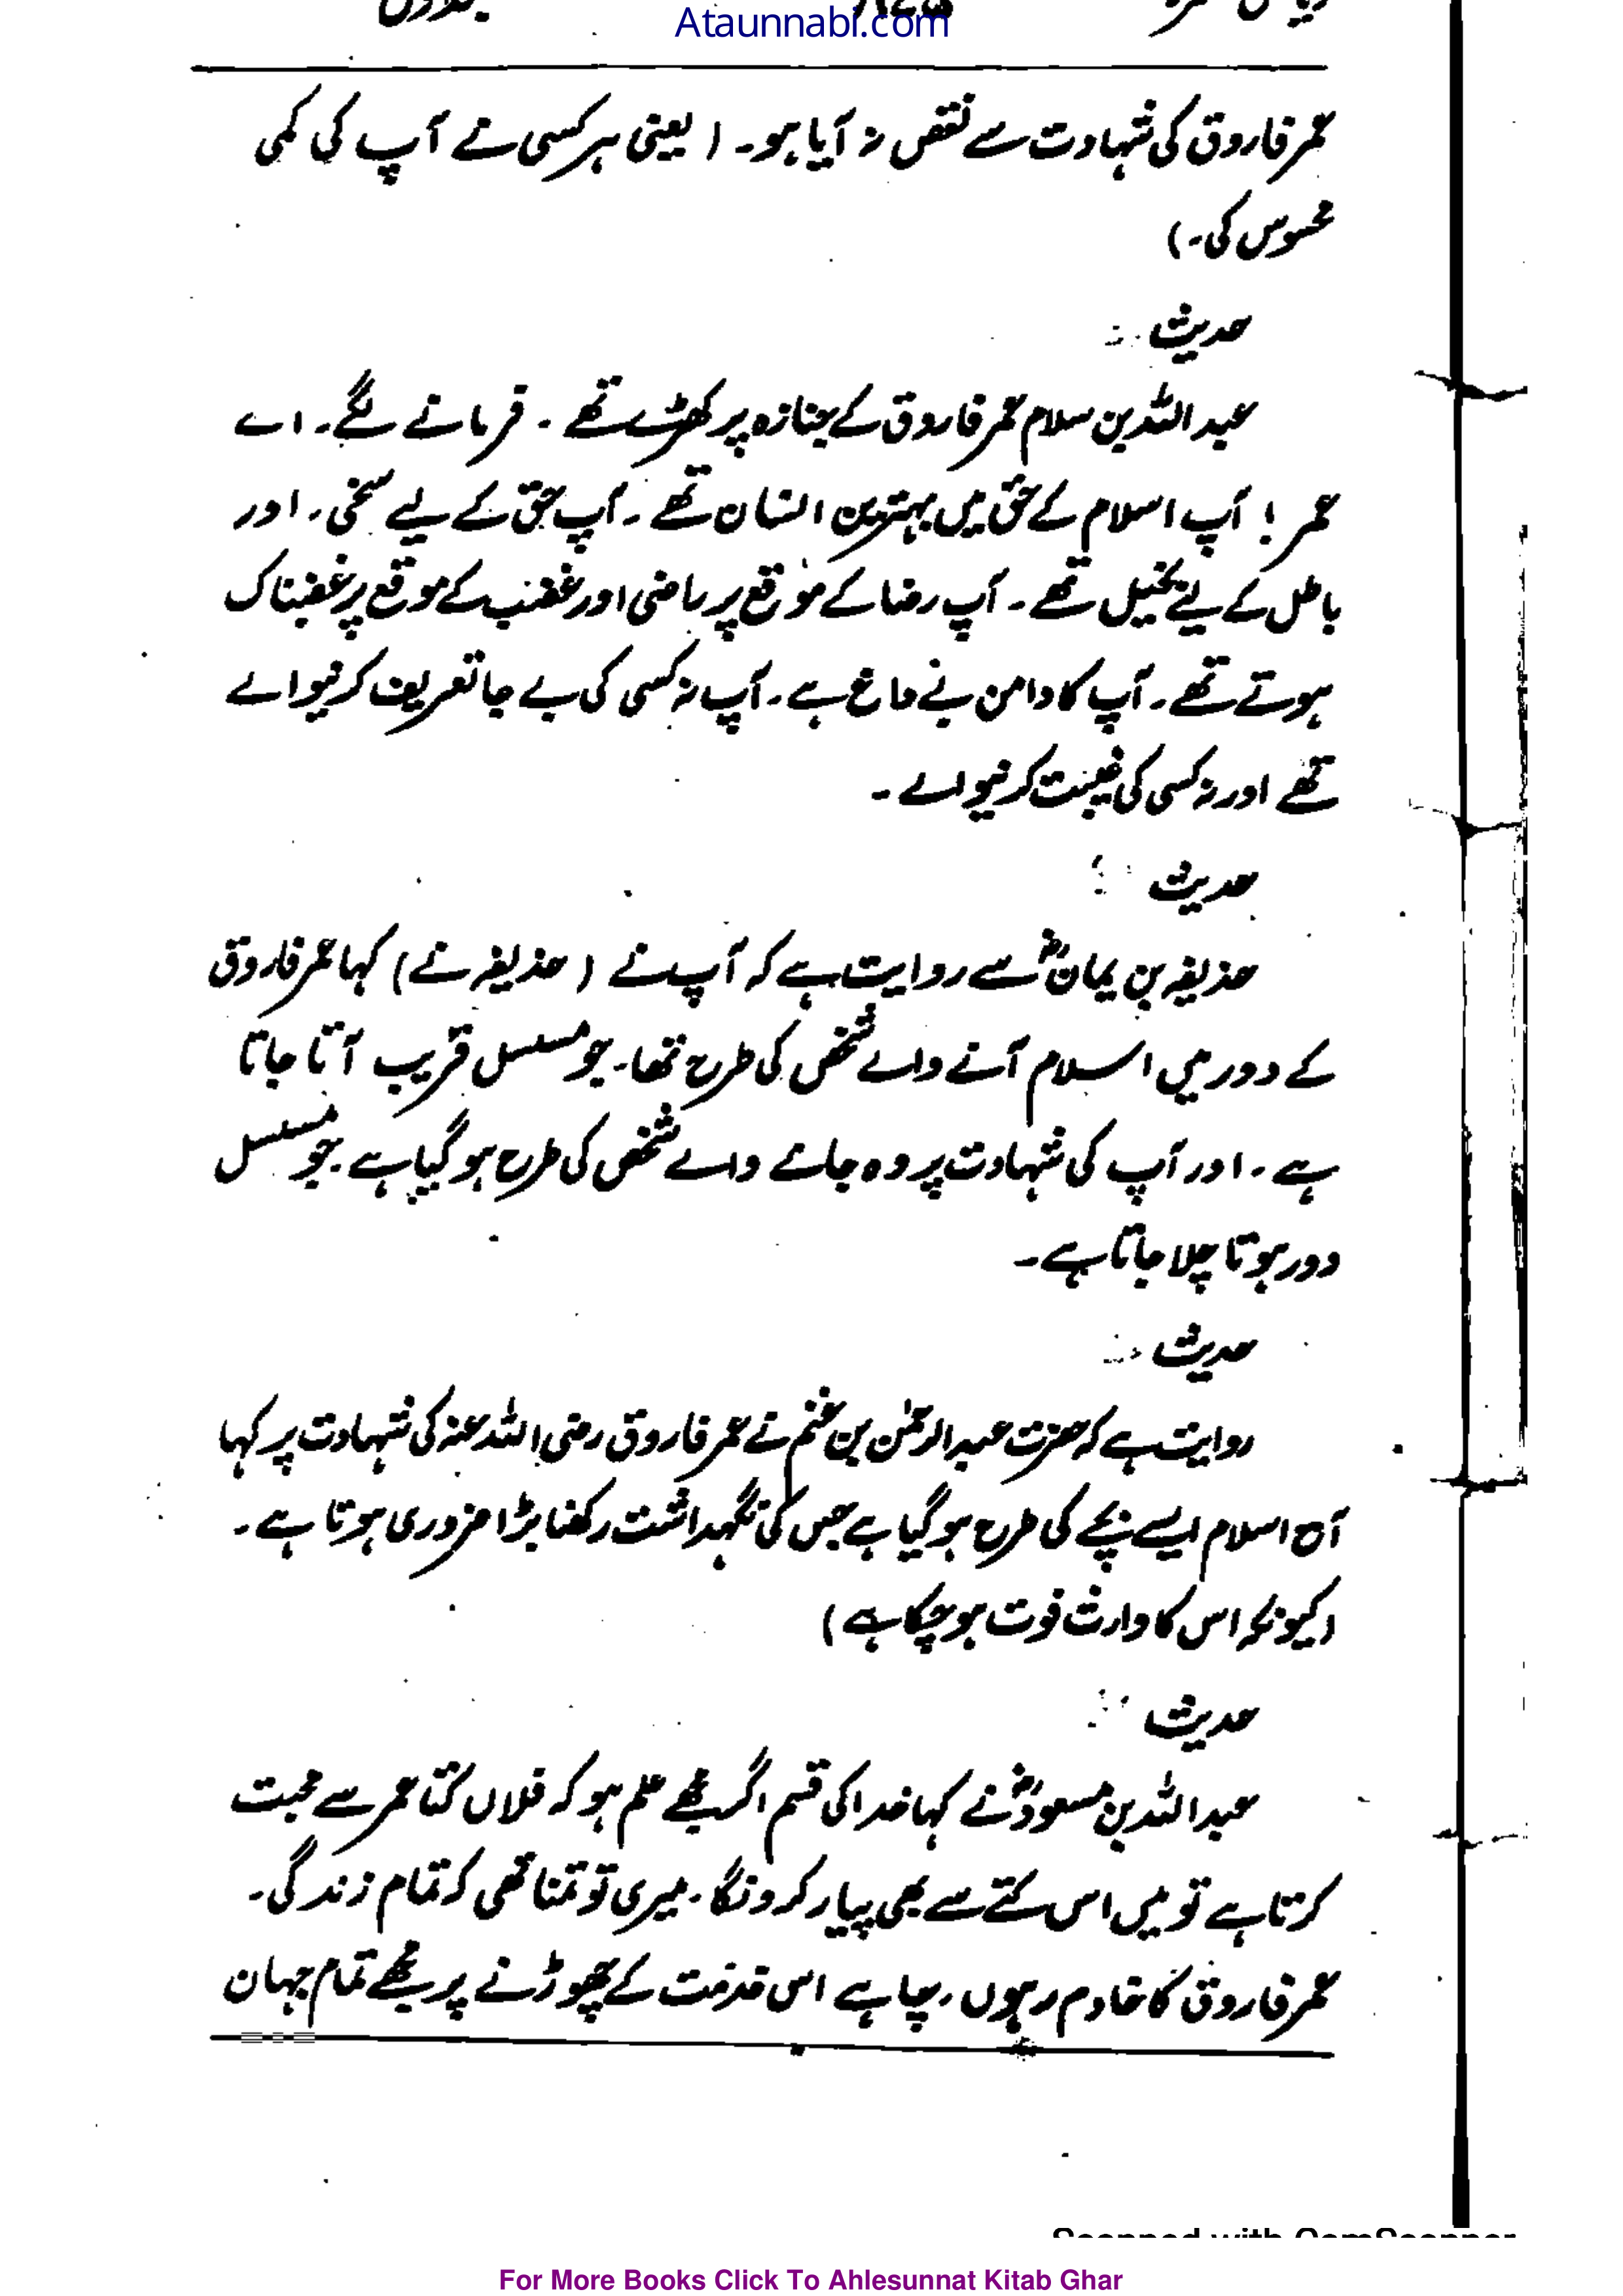 Ataunnabi.com
عمر فاروق کی شہادت سے نقص نہ آیا ہو۔ (یعنی ہر کسی نے آپ کی کمی
محسوس کی۔)
حدیث :
عبد اللہ بن سلام عمر فاروق کے جنازہ پر کھڑے تھے ۔ فرمانے لگے۔ اے
عمر ! آپ اسلام کے حق میں بہترین انسان تھے ۔ آپ حق کے لیے سخی ۔ اور
باطل کے لیے بخیل تھے ۔ آپ رضا کے موقع پر راضی اور غضب کے موقع پر غضبناک
ہوتے تھے ۔ آپ کا دامن بے داغ ہے ۔ آپ نہ کسی کی بے جا تعریف کرنیوالے
تھے اور نہ کسی کی غیبت کرنیوالے ۔
حدیث :
حذیفہ بن یمانؓ سے روایت ہے کہ آپ نے (حذیفہ نے) کہا عمر فاروق
کے دور میں اسلام آنے والے شخص کی طرح تھا۔ جو مسلسل قریب آتا جاتا
ہے ۔ اور آپ کی شہادت پر وہ جانے والے شخص کی طرح ہو گیا ہے ۔ جو مسلسل
دور ہوتا چلا جاتا ہے ۔
حدیث :
روایت ہے کہ حضرت عبد الرحمٰن بن غنم نے عمر فاروق رضی اللہ عنہ کی شہادت پر کہا
آج اسلام ایسے بچے کی طرح ہو گیا ہے جس کی نگہداشت رکھنا بڑا ضروری ہوتا ہے ۔
(کیونکہ اس کا وارث فوت ہو چکا ہے)
حدیث :
عبد اللہ بن مسعودؓ نے کہا خدا کی قسم اگر مجھے علم ہو کہ فلاں کتا عمر سے محبت
کرتا ہے تو میں اس کتے سے بھی پیار کرونگا ۔ میری تو تمنا تھی کہ تمام زندگی ۔
عمر فاروق کا خادم رہوں ۔ چاہے اس خدمت کے چھوڑنے پر مجھے تمام جہان
Scanned with CamScanner
For More Books Click To Ahlesunnat Kitab Ghar